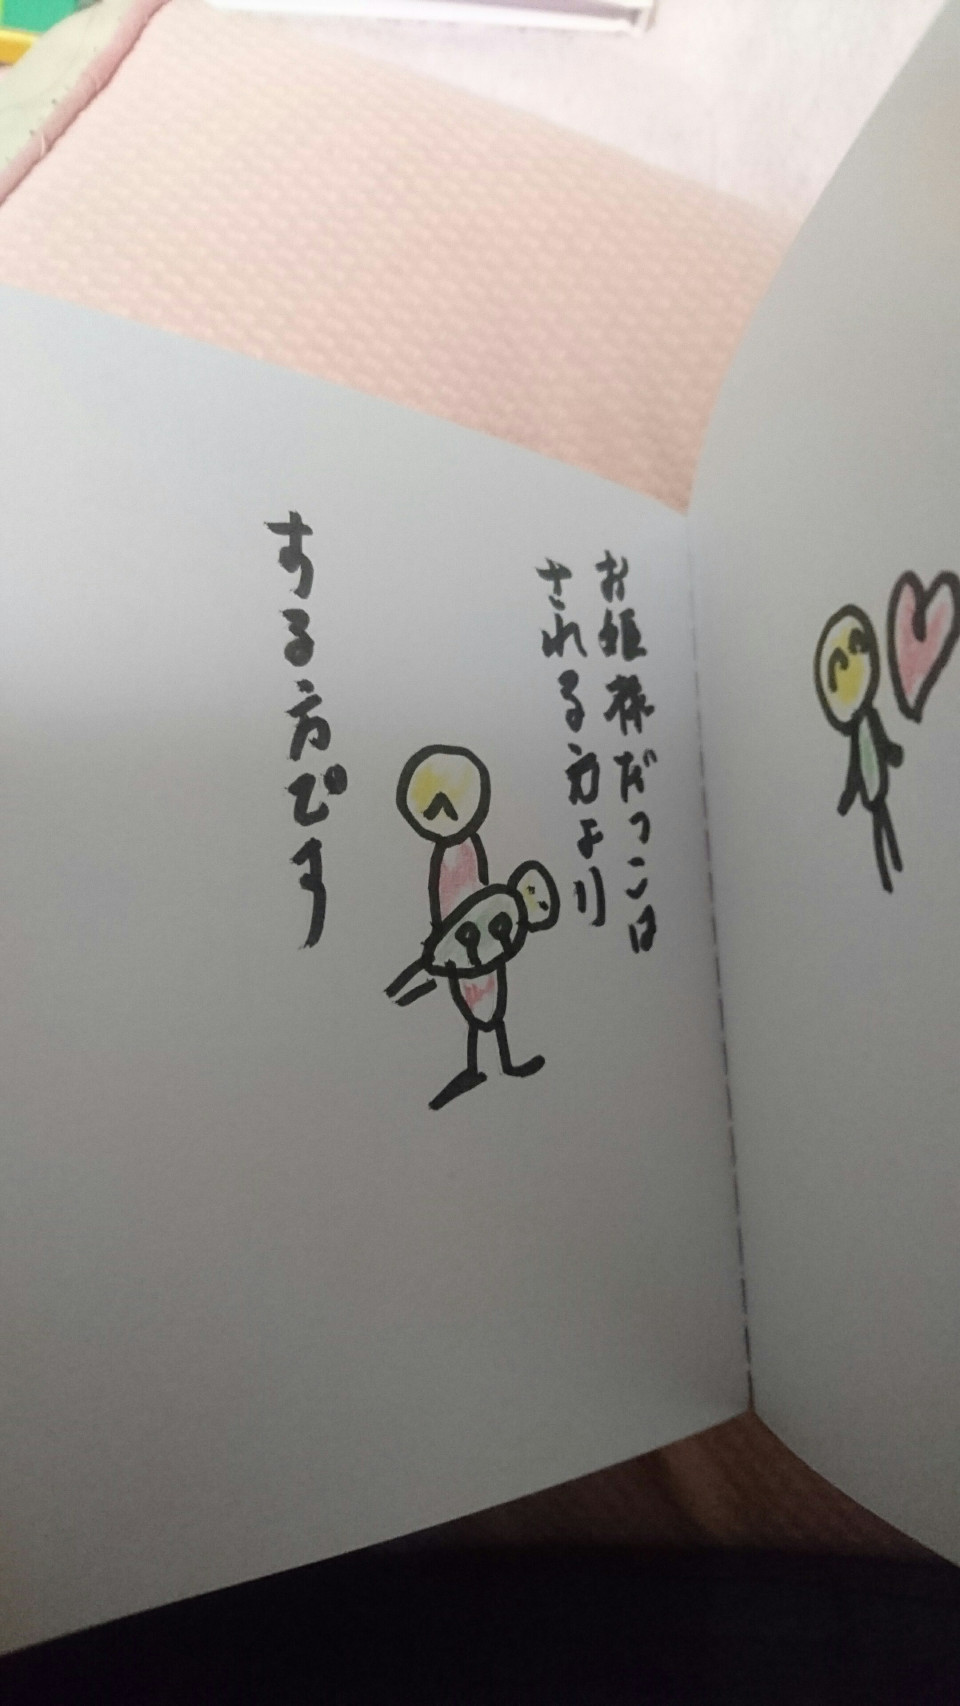 お姫様だっこは
される方より
する方ぴす